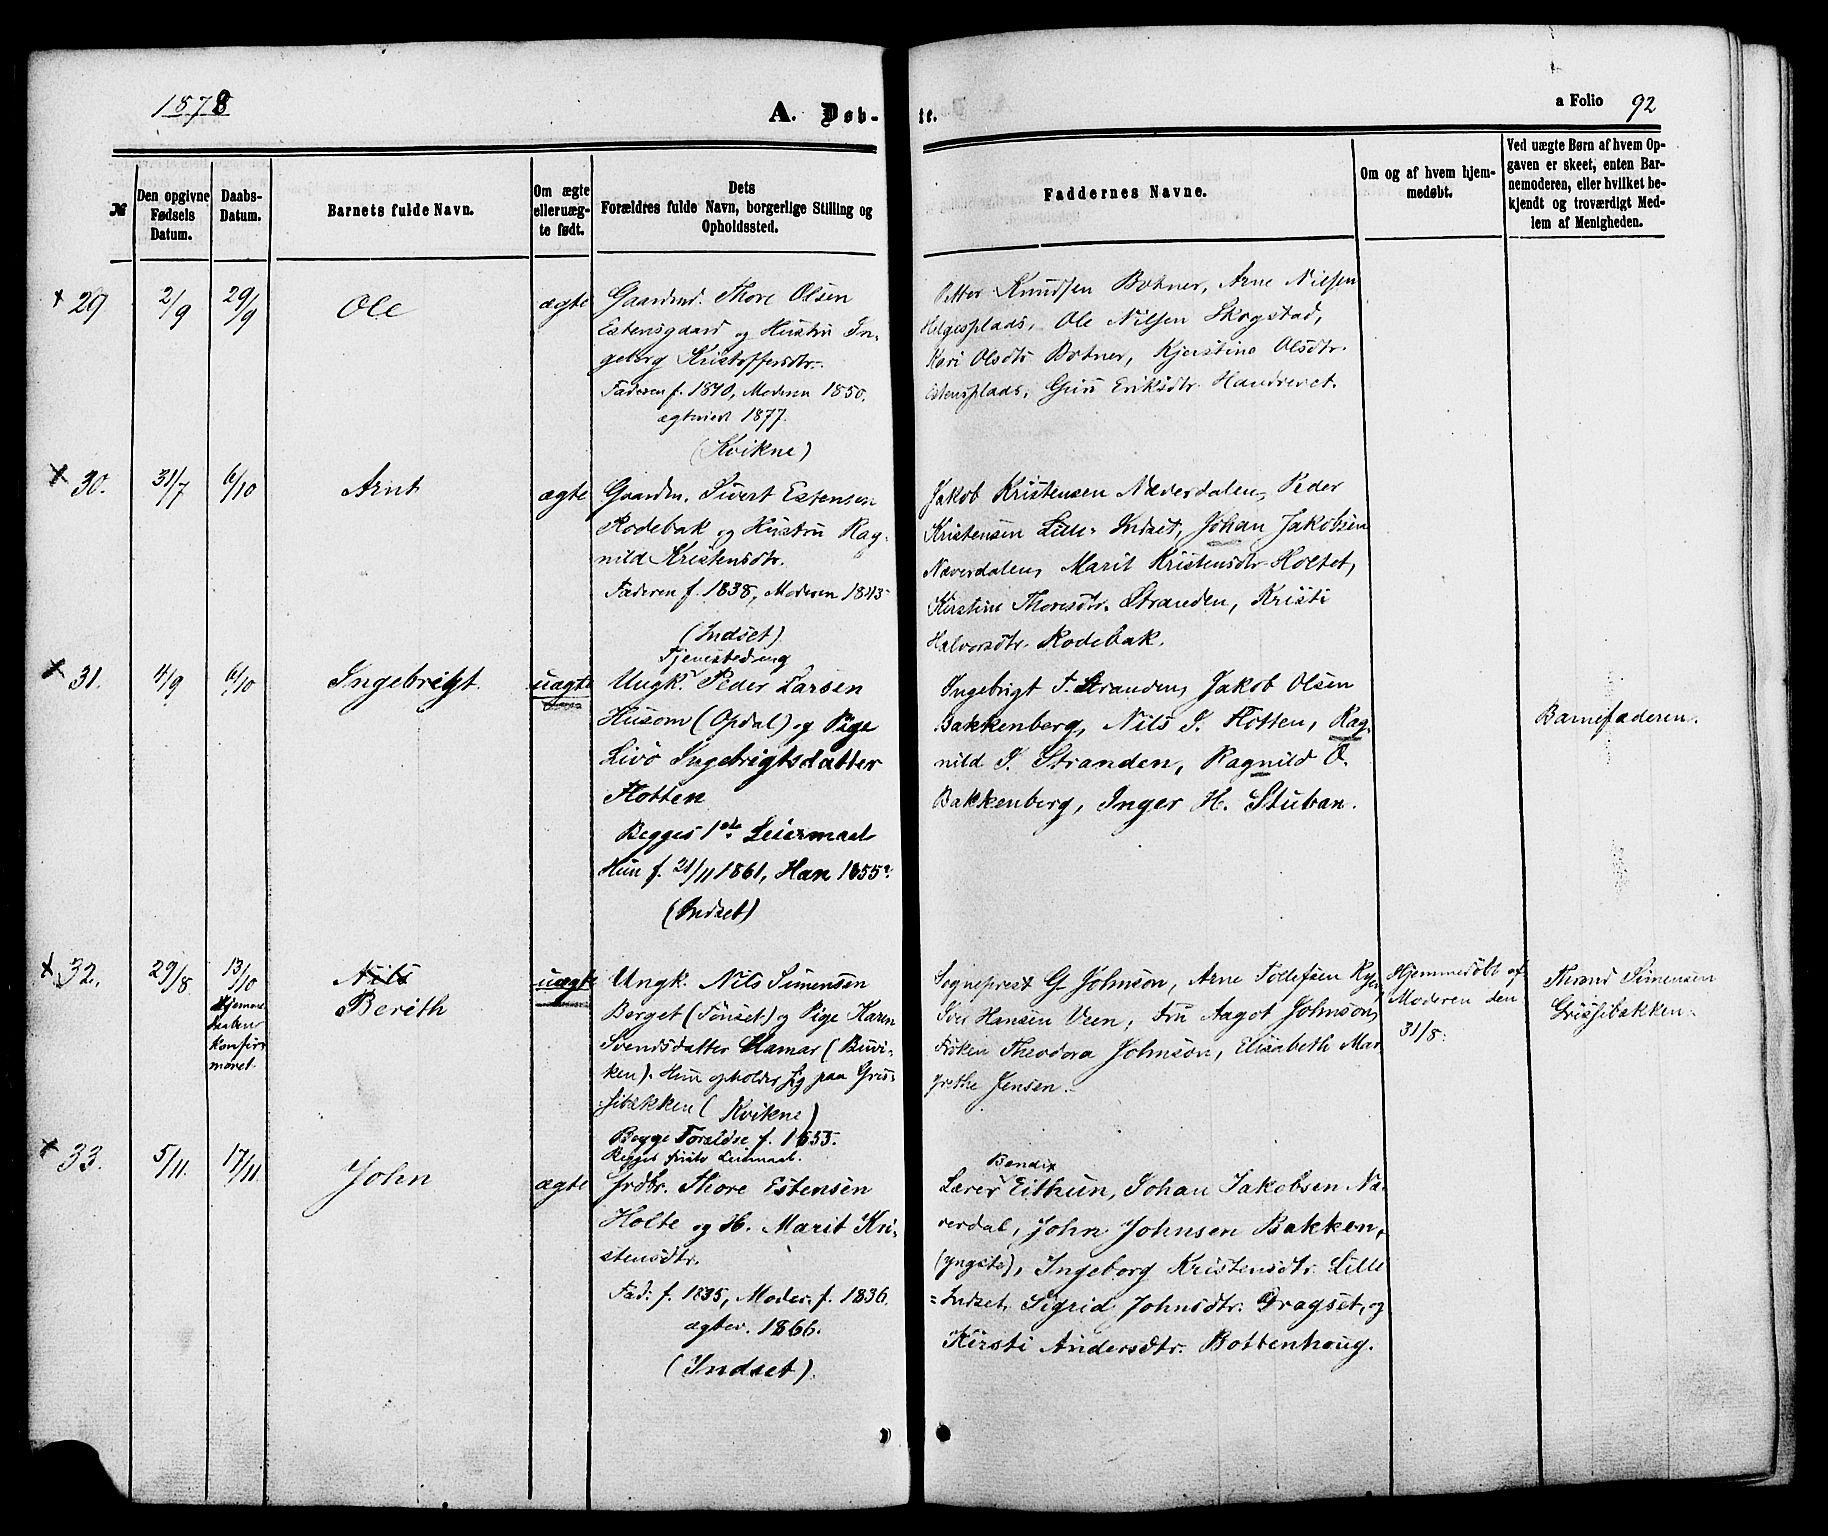 1878
A. Døb-
№
Den opgivne
Fødsels
Datum.
Daabs-
Datum.
Barnets fulde Navn.
Om ægte
eller uæg-
te født.
Dets
Forældres fulde Navn, borgerlige Stilling og
Opholdssted.
te.
a Folio 92
Faddernes Navne.
Om og af hvem hjem-
medøbt.
Ved uægte Børn af hvem Op-
gaven er skeet, enten Bar-
nemoderen, eller hvilket be-
kjendt og troværdigt Med-
lem af Menigheden.
x 29
2/9
29/9
Ole
ægte
Gaardmd. Thore Olsen
Estensgaard og Hustru In-
geborg Kristoffersdtr.
Faderen f. 1840, Moderen 1850.
ægteviet 1877.
(Kvikne)
Petter Knudsen Botner, Arne Nilsen
Helgesplads, Ole Nilsen Skogstad,
Kari Olsdtr Botner, Kjerstine Olsdtr.
Estensplads, Guri Eriksdtr.
x 30.
31/7
6/10
Arnt
ægte
Gaardm. Sivert Estensen
Rodebak og Hustru Rag-
nild Kristensdtr.
Faderen f. 1838, Moderen 1843
(Indset)
Jakob Kristensen Næverdalen, Peder
Kristensen Lille-Indset, Johan Jakobsen
Næverdalen, Marit Kristensdtr Holtet,
Kirstine Thoresdtr. Stranden, Kristi
Halvorsdtr. Rodebak.
x 31.
4/9
6/10
Ingebrigt.
uægte
Tjenestedreng
Ungk. Peder Larsen
Husom (Opdal) og Pige
Livö Ingebrigtsdatter
Flotten
Begges 1ste Leiermaal
Hun f. 21/11 1861, Han 1855
(Indset)
Ingebrigt T. Stranden, Jakob Olsen
Bakkenberg, Nils S. Flotten, Rag-
nild S. Stranden, Ragnild O.
Bakkenberg, Inger H. Stuban.
Barnefaderen.
x 32.
29/8
13/10
Hjemme-
daaben
konfir-
meret.
Nils
Berith
uægte
Ungk. Nils Simensen
Berget (Tönset) og Pige Karen
Svendsdatter Hamar (Buvi-
ken). Hun opholder sig paa Gris-
sibækken (Kvikne)
Begge Foraldre f. 1853.
Begges første Leiermaal.
Sogneprest G Johnson, Arne Tollefsen
Hansen Veen, Fru Aagot Johnson,
Frøken Theodora Johnson, Elisabeth Mar-
grethe Jensen.
Hjemmedöbt af
Moderen den
31/8.
Simensen
Grissibækken.
x 33.
5/11.
17/11
John
ægte
Jrdbr. Thore Estensen
Holte og H. Marit Kri-
stensdtr.
Fad: f. 1835, Moder. f. 1836.
ægtev. 1866.
(Indset).
Bendix
Lærer Eithun, Johan Jakobsen Næ-
verdal, John Johnsen Bakken,
(yngste), Ingeborg Kristensdtr. Lille
=Indset, Sigrid Johnsdtr. Dragset, og
Kirsti Andersdtr. Bottenhoug.